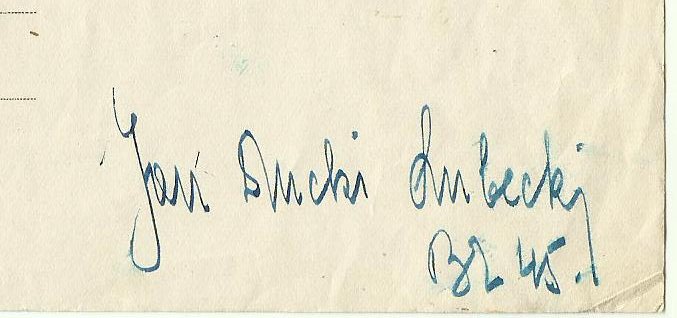 Jan Drucki Lubecki
BZ 45.